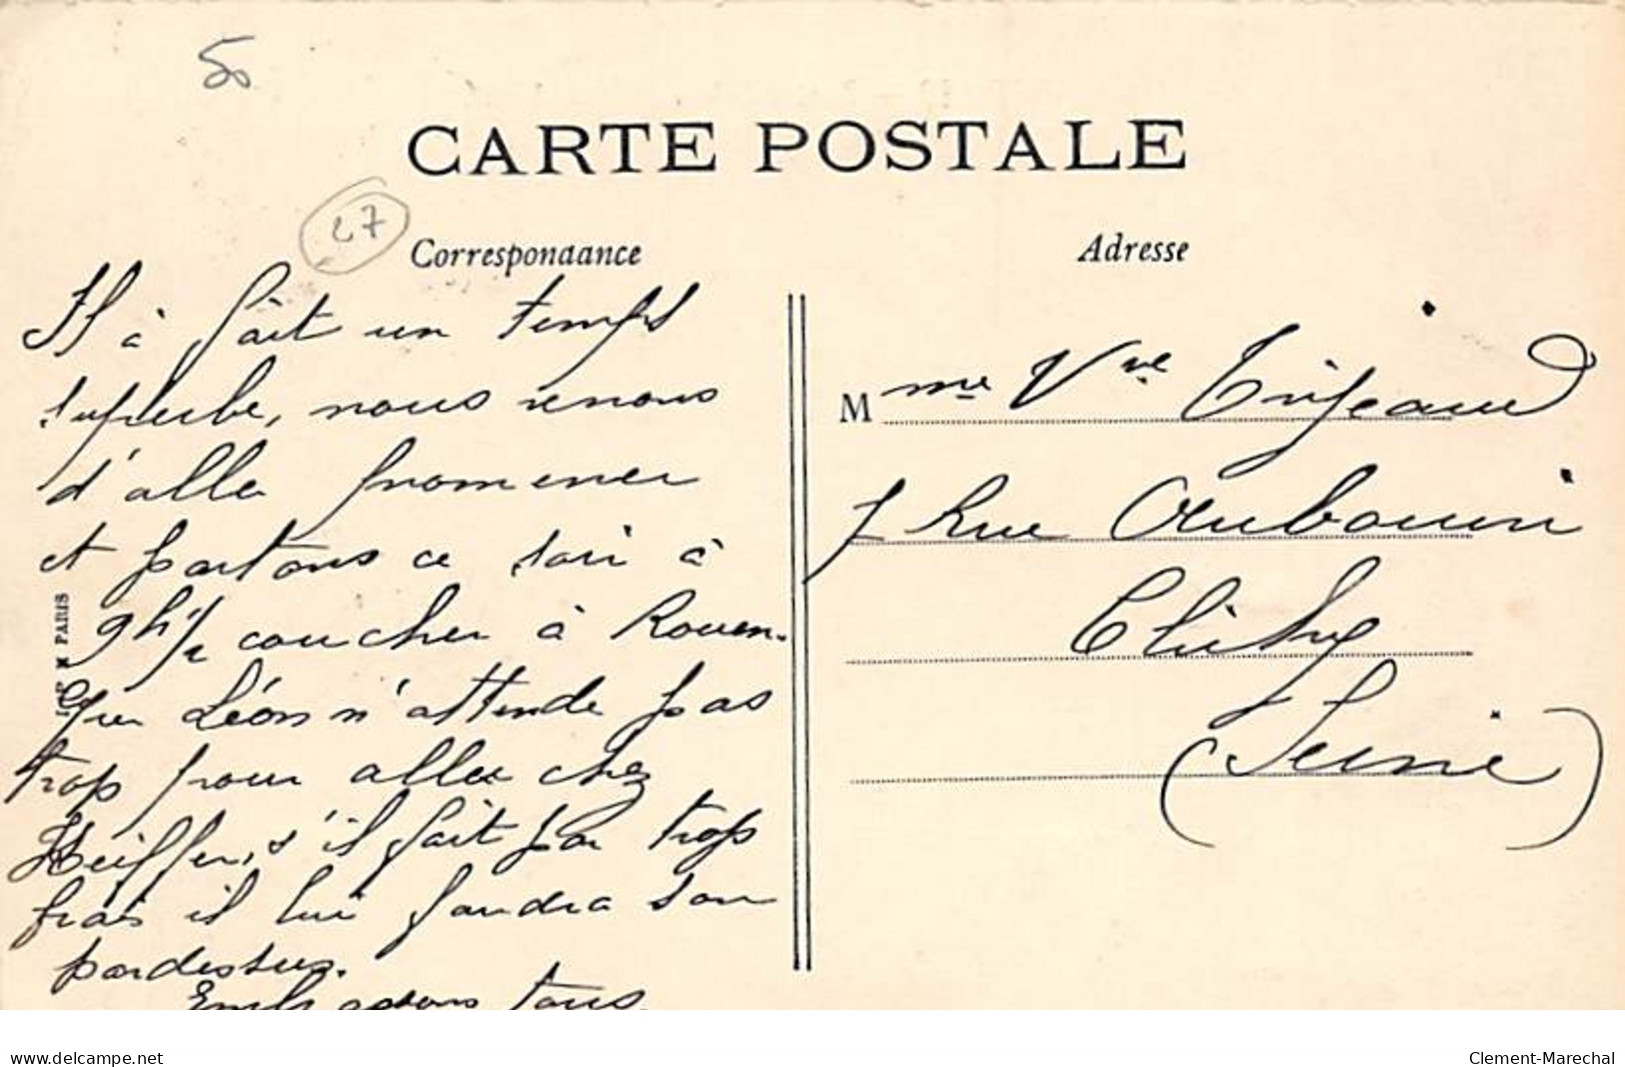 50
CARTE POSTALE
27
Correspondance
Adresse
Il à fait un temps
superbe, nous venons
d'aller promener
et partons ce soir à
9h 1/2 coucher à Rouen.
Que Léon n'attende pas
trop pour aller chez
s'il fait par trop
frais il lui faudra son
pardessus.
tous.
PARIS
Mme Vve
7 Rue
Clichy
(Seine)
delcampe.net
Clement-Marechal